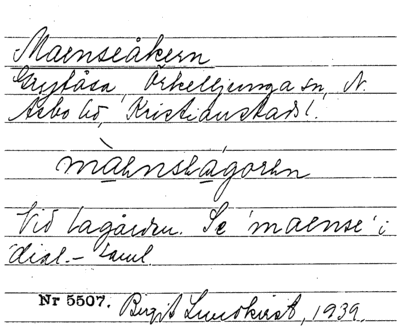 Maenseåkern
Grytåsa, Örkelljunga sn, N.
Åsbo hd, Kristianstads l.
màenseågoren
Vid lagården. Se 'maense' i
dial.-saml.
Nr 5507. Birgit Lundkvist, 1939.